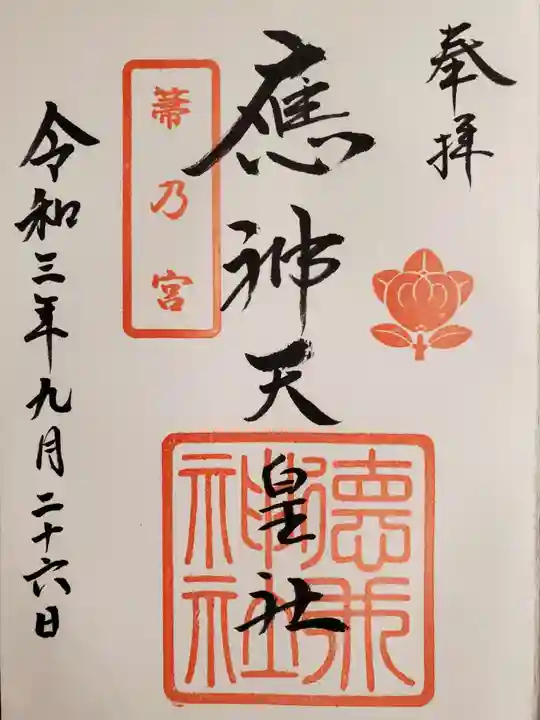 奉拝
應神天皇社
箒乃宮
令和三年九月二十六日